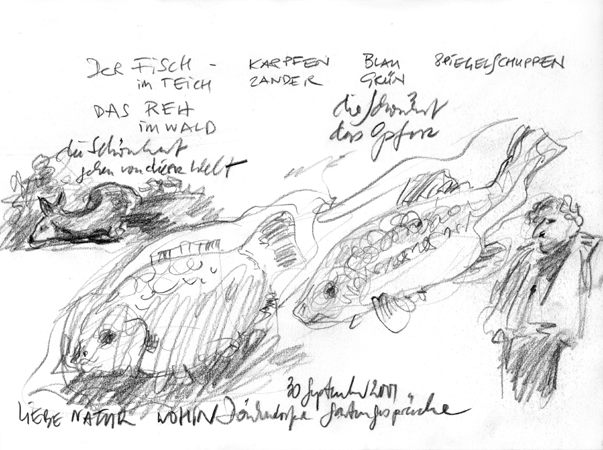 DER FISCH - KARPFEN BLAU SPIEGELSCHUPPEN
im TEICH ZANDER GRÜN
DAS REH
im WALD
die Schönheit
des Opfers
die Schönheit
von dieser Welt
30 September 2001
LIEBE NATUR WOHIN Gartengespräche